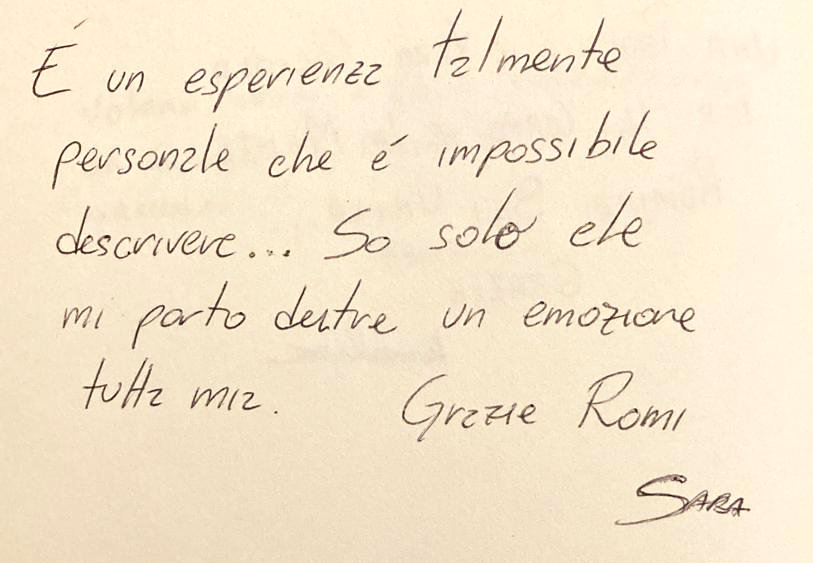 É un esperienza talmente
personale che é impossibile
descrivere... So solo che
mi porto dentro un emozione
tutta mia. Grazie Romi
SARA